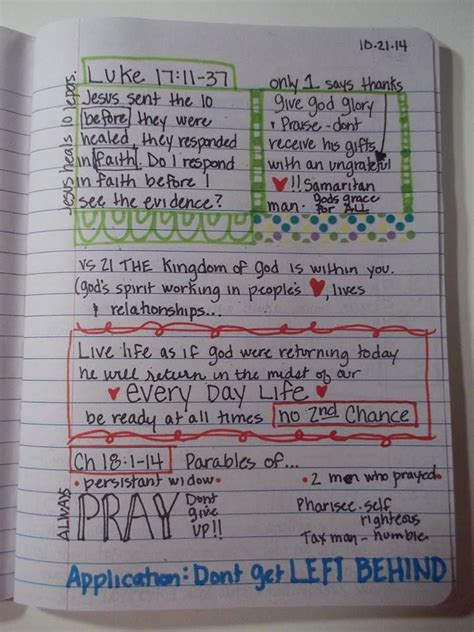 10-21-14
Luke 17:11-37
Jesus heals 10 lepors.
Jesus sent the 10
before they were
healed they responded
in faith. Do I respond
in faith before I
see the evidence?
only 1 says thanks
give god glory
• Praise - dont
receive his gifts
with an ungrateful
♥!! Samaritan
man - gods grace
for ALL
vs 21 THE Kingdom of god is within you.
(god's spirit working in people's ♥, lives
& relationships...
Live life as if god were returning today
he will return in the midst of our
♥ every Day Life ♥
be ready at all times no 2nd Chance
Ch 18:1-14 Parables of...
• persistant widow •
ALWAYS
PRAY Dont
give
UP!!
• 2 men who prayed •
Pharisee - self
righteous
Tax man - humble
Application: Dont get LEFT BEHIND